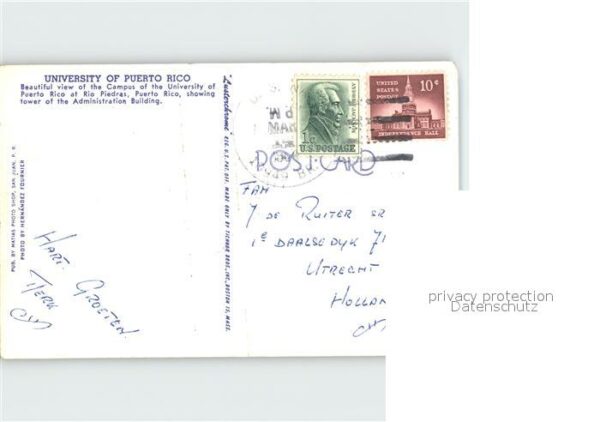 UNIVERSITY OF PUERTO RICO
Beautiful view of the Campus of the University of
Puerto Rico at Rio Piedras, Puerto Rico, showing
tower of the Administration Building.
PUB. BY MATIAS PHOTO SHOP, SAN JUAN, P. R.
PHOTO BY HERNÁNDEZ FOURNIER
HART. GROETEN
TJERK
"Lusterchrome" REG. U.S. PAT. OFF. MADE ONLY BY TICHNOR BROS., INC., BOSTON 15, MASS.
POST CARD
PM
MAR
1¢
U.S. POSTAGE
ANDREW JACKSON
UNITED
STATES
POSTAGE
10¢
INDEPENDENCE HALL
FAM
DE RUITER SR
1e DAALSEDYK 71
UTRECHT
HOLLAN
privacy protection
Datenschutz